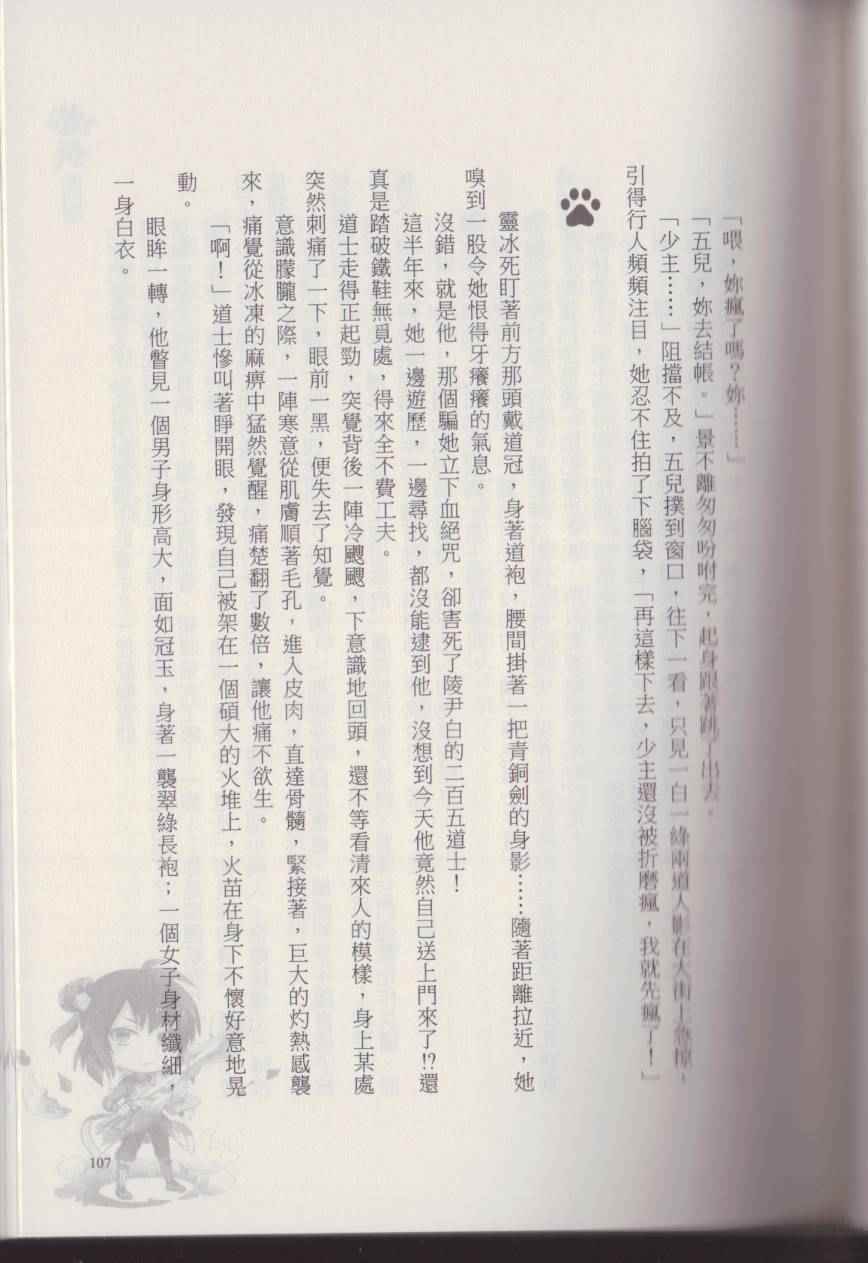 「喂，妳瘋了嗎？妳……」
「五兒，妳去結帳。」景不離匆匆吩咐完，起身跟著跳了出去。
「少主……」阻擋不及，五兒撲到窗口，往下一看，只見一白一綠兩道人影在大街上奔掠，
引得行人頻頻注目，她忍不住拍了下腦袋，「再這樣下去，少主還沒被折磨瘋，我就先瘋了！」
靈冰死盯著前方那頭戴道冠，身著道袍，腰間掛著一把青銅劍的身影……隨著距離拉近，她
嗅到一股令她恨得牙癢癢的氣息。
沒錯，就是他，那個騙她立下血絕咒，卻害死了陵尹白的二百五道士！
這半年來，她一邊遊歷，一邊尋找，都沒能逮到他，沒想到今天他竟然自己送上門來了!?還
真是踏破鐵鞋無覓處，得來全不費工夫。
道士走得正起勁，突覺背後一陣冷颼颼，下意識地回頭，還不等看清來人的模樣，身上某處
突然刺痛了一下，眼前一黑，便失去了知覺。
意識朦朧之際，一陣寒意從肌膚順著毛孔，進入皮肉，直達骨髓，緊接著，巨大的灼熱感襲
來，痛覺從冰凍的麻痹中猛然覺醒，痛楚翻了數倍，讓他痛不欲生。
「啊！」道士慘叫著睜開眼，發現自己被架在一個碩大的火堆上，火苗在身下不懷好意地晃
動。
眼眸一轉，他瞥見一個男子身形高大，面如冠玉，身著一襲翠綠長袍；一個女子身材纖細，
一身白衣。
107